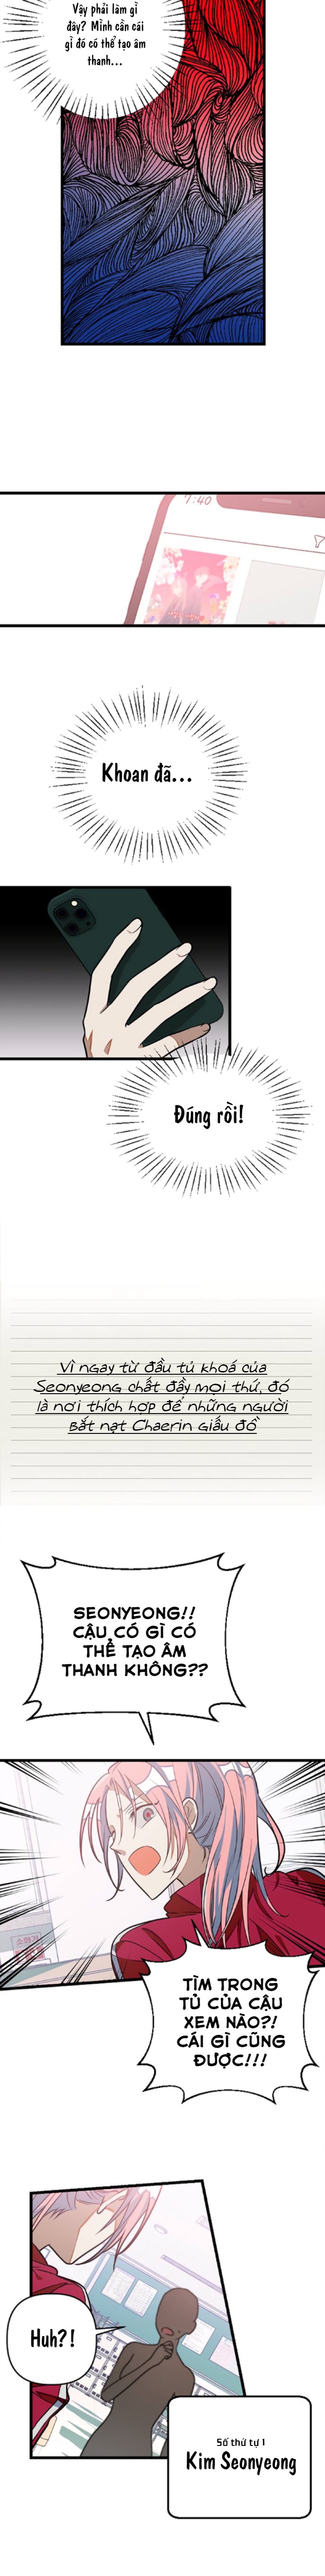 Vậy phải làm gì
đây? Mình cần cái
gì đó có thể tạo âm
thanh...
7:40
Khoan đã...
Đúng rồi!
Vì ngay từ đầu tủ khoá của
Seonyeong chất đầy mọi thứ, đó
là nơi thích hợp để những người
bắt nạt Chaerin giấu đồ
SEONYEONG!!
CẬU CÓ GÌ CÓ
THỂ TẠO ÂM
THANH KHÔNG??
소화기
TÌM TRONG
TỦ CỦA CẬU
XEM NÀO?!
CÁI GÌ CŨNG
ĐƯỢC!!!
Huh?!
Số thứ tự 1
Kim Seonyeong